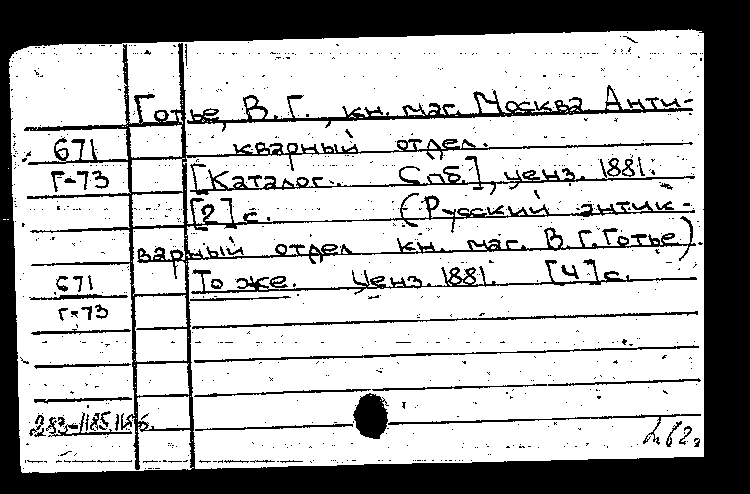 Готье, В. Г., кн. маг. Москва Анти-
671 кварный отдел.
Г-73 [Каталог. Спб.], ценз. 1881.
[2] с. (Русский антик-
варный отдел кн. маг. В. Г. Готье).
671 То же. Ценз. 1881. [4] с.
Г-73
283-1185
62г